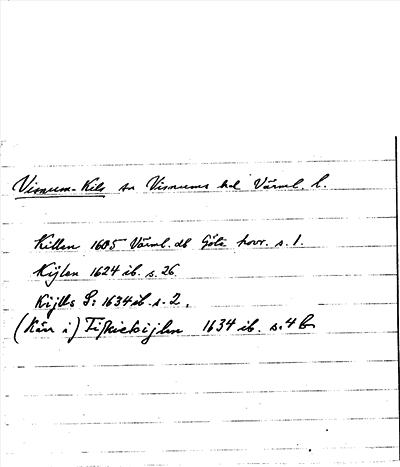 Visnum-Kils sn Visnums hd Värml. l.
Killen 1605 Värml. db Göta hovr. s. 1.
Kijlen 1624 ib. s. 26.
Kijlls S: 1634 ib. s. 2.
(Kär i) 1634 ib. s. 4 b